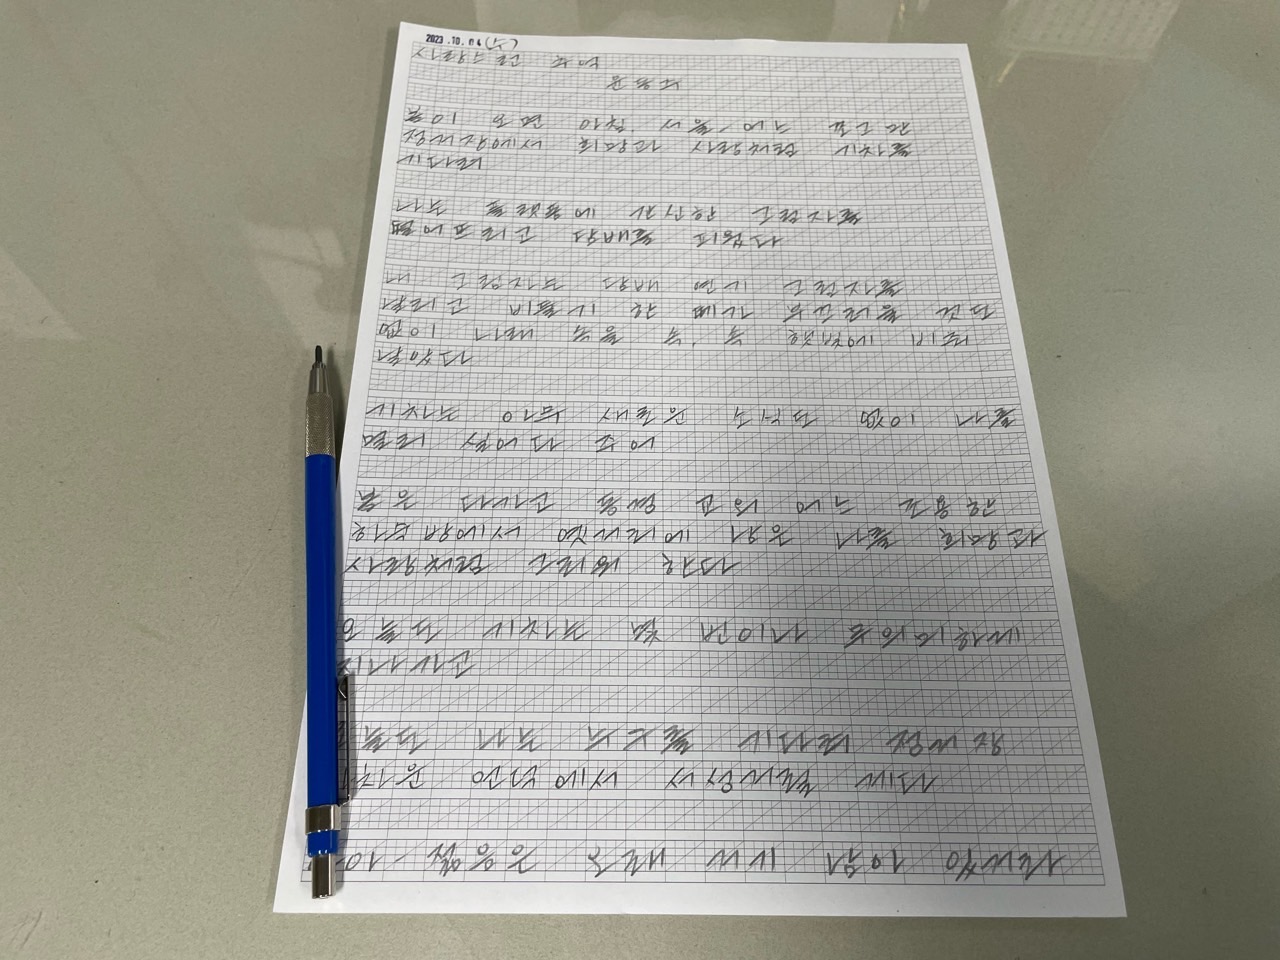 2023.10.04(수)
사랑스런 추억
윤동주
봄이 오던 아침, 서울 어느 쪼그만
정거장에서 희망과 사랑처럼 기차를
기다려
나는 플랫폼에 간신한 그림자를
떨어뜨리고 담배를 피웠다
내 그림자는 담배 연기 그림자를
날리고 비둘기 한 떼가 부끄러울 것도
없이 나래 속을 속, 속 햇빛에 비춰
날았다
기차는 아무 새로운 소식도 없이 나를
멀리 실어다 주어
봄은 다 가고 동경 교외 어느 조용한
하숙방에서 옛거리에 남은 나를 희망과
사랑처럼 그리워 한다
오늘도 기차는 몇 번이나 무의미하게
지나가고
오늘도 나는 누구를 기다려 정거장
가차운 언덕에서 서성거릴 게다
젊음은 오래 거기 남아 있거라